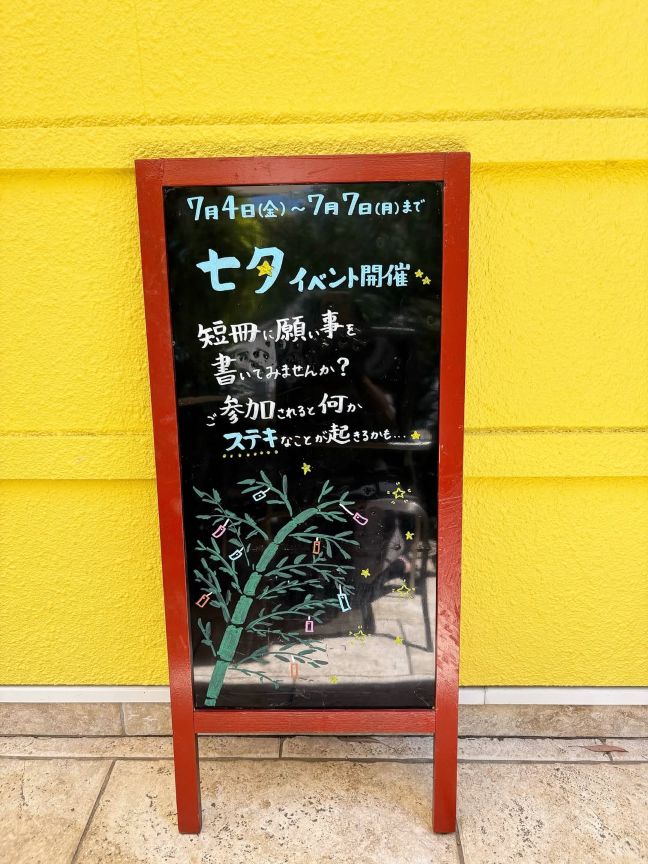 7月4日(金)～7月7日(月)まで
七夕イベント開催
短冊に願い事を
書いてみませんか?
ご参加されると何か
ステキなことが起きるかも…